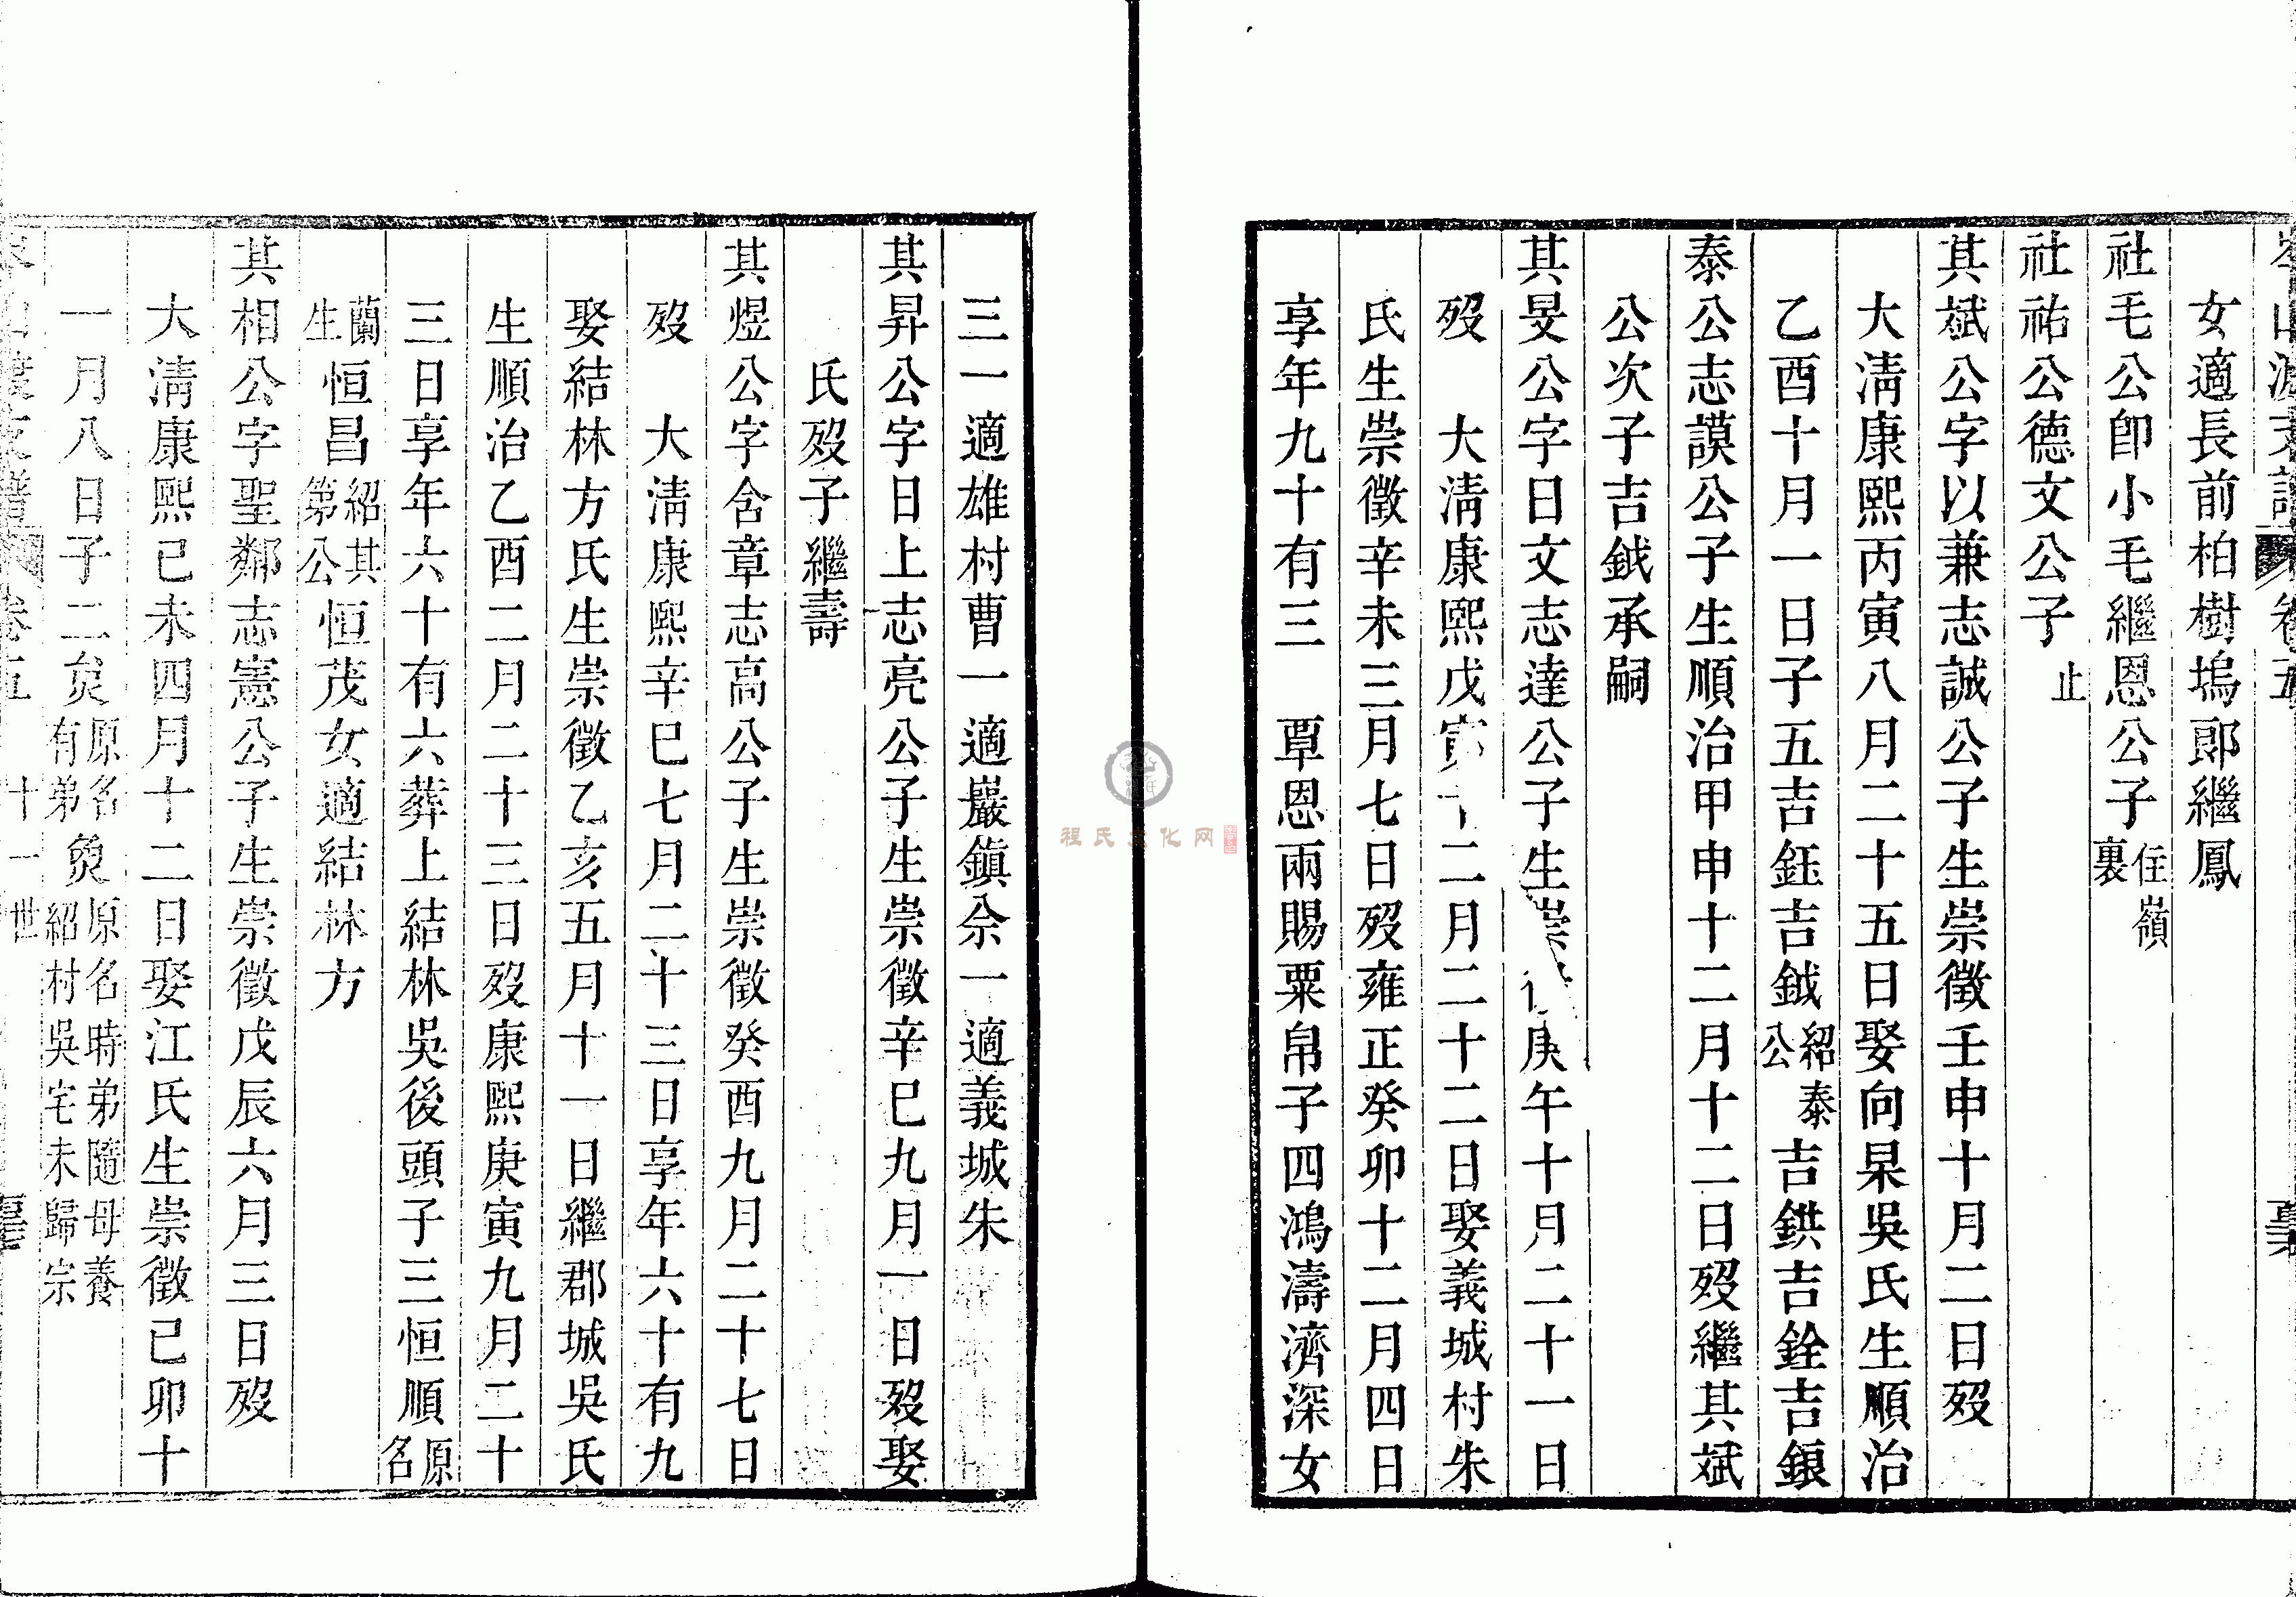 卷五
女適長前柏樹塢郎繼鳳
社毛公卽小毛繼恩公子住嶺裏
社祐公德文公子止
其斌公字以兼志誠公子生崇徵壬申十月二日歿
大淸康熙丙寅八月二十五日娶向杲吳氏生順治
乙酉十月一日子五吉鈺吉鉞紹泰公吉鉷吉銓吉鋃
泰公志謨公子生順治甲申十二月十二日歿繼其斌
公次子吉鉞承嗣
其旻公字日文志達公子生崇庚午十月二十一日
歿大淸康熙戊寅十二月二十二日娶義城村朱
氏生崇徵辛未三月七日歿雍正癸卯十二月四日
享年九十有三覃恩兩賜粟帛子四鴻濤濟深女
三一適雄村曹一適巖鎭佘一適義城朱
其昇公字日上志亮公子生崇徵辛巳九月一日歿娶
氏歿子繼壽
其煜公字含章志高公子生崇徵癸酉九月二十七日
歿大淸康熙辛巳七月二十三日享年六十有九
娶結林方氏生崇徵乙亥五月十一日繼郡城吳氏
生順治乙酉二月二十三日歿康熙庚寅九月二十
三日享年六十有六葬上結林吳後頭子三恒順原名
蘭生恒昌紹其第公恒茂女適結林方
其相公字聖鄰志憲公子生崇徵戊辰六月三日歿
大淸康熙己未四月十二日娶江氏生崇徵己卯十
一月八日子二炱原名有弟煲原名時弟隨母養紹村吳宅未歸宗
卷五 十一世
程氏文化网